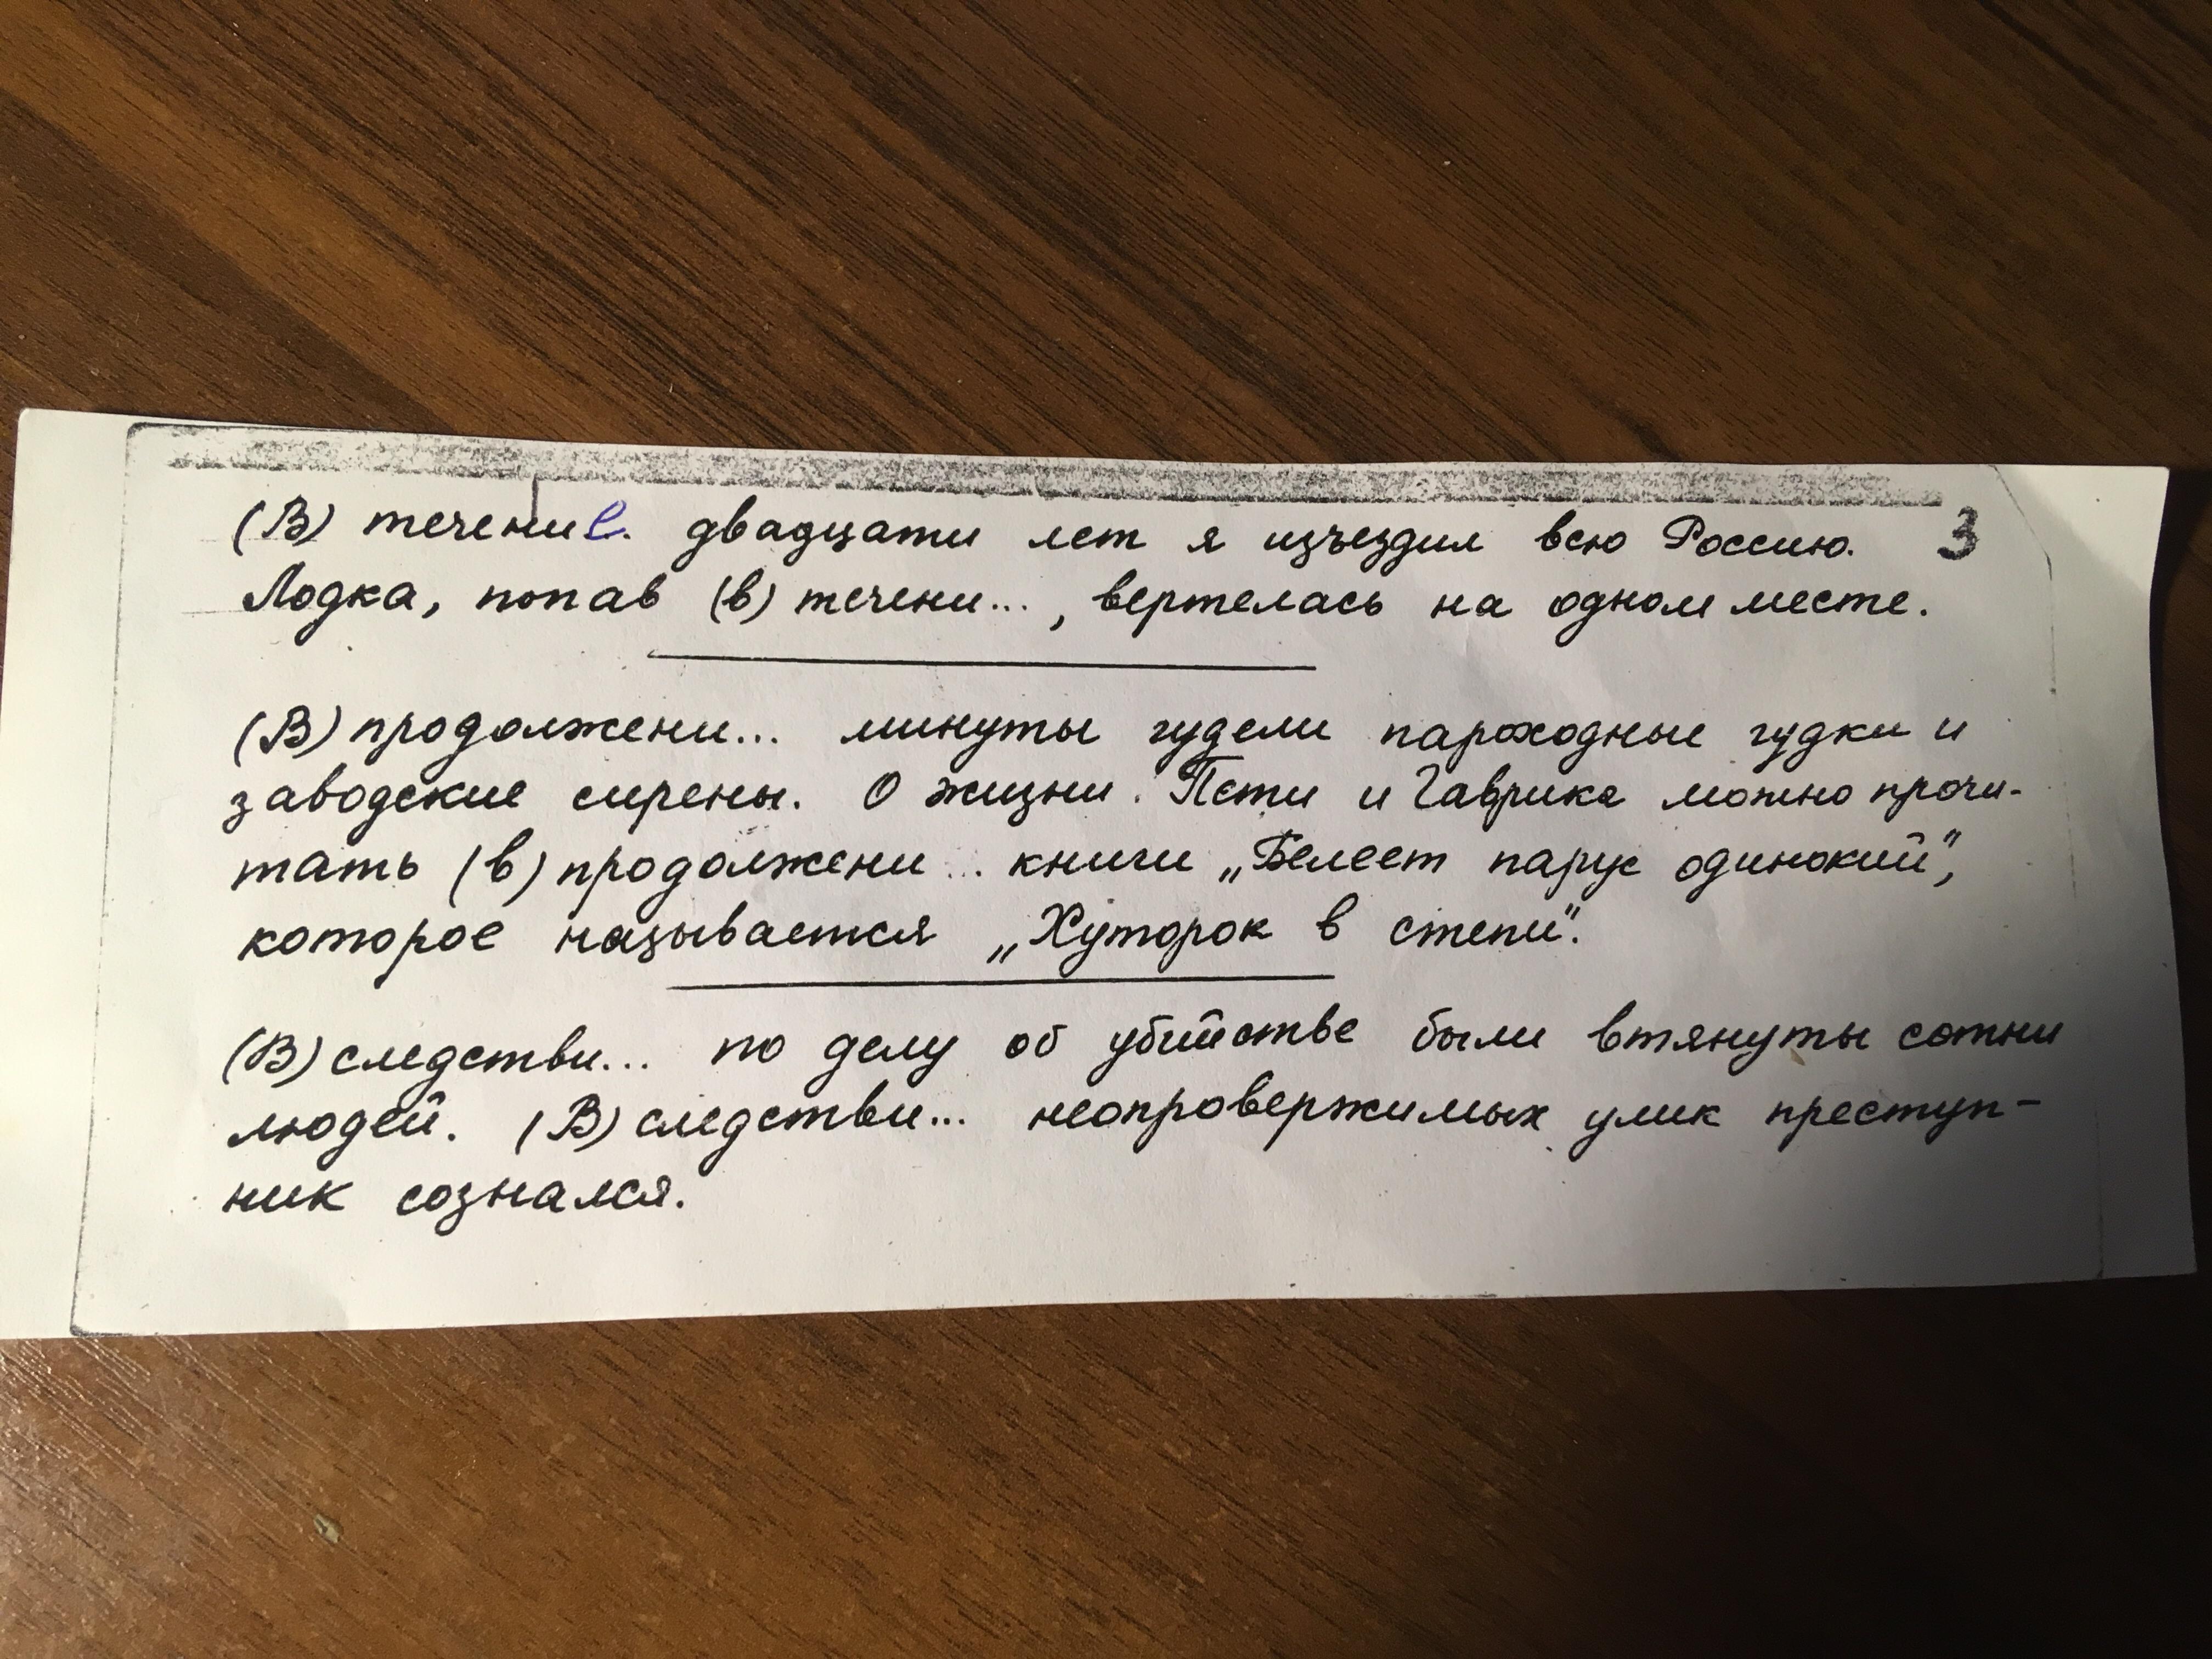 (В) течение. двадцати лет я изъездил всю Россию. 3
Лодка, попав (в) течени..., вертелась на одном месте.
(В) продолжени... минуты гудели пароходные гудки и
заводские сирены. О жизни Пети и Гаврика можно прочи-
тать (в) продолжени... книги „Белеет парус одинокий",
которое называется „Хуторок в степи".
(В) следстви... по делу об убийстве были втянуты сотни
людей. (В) следстви... неопровержимых улик преступ-
ник сознался.